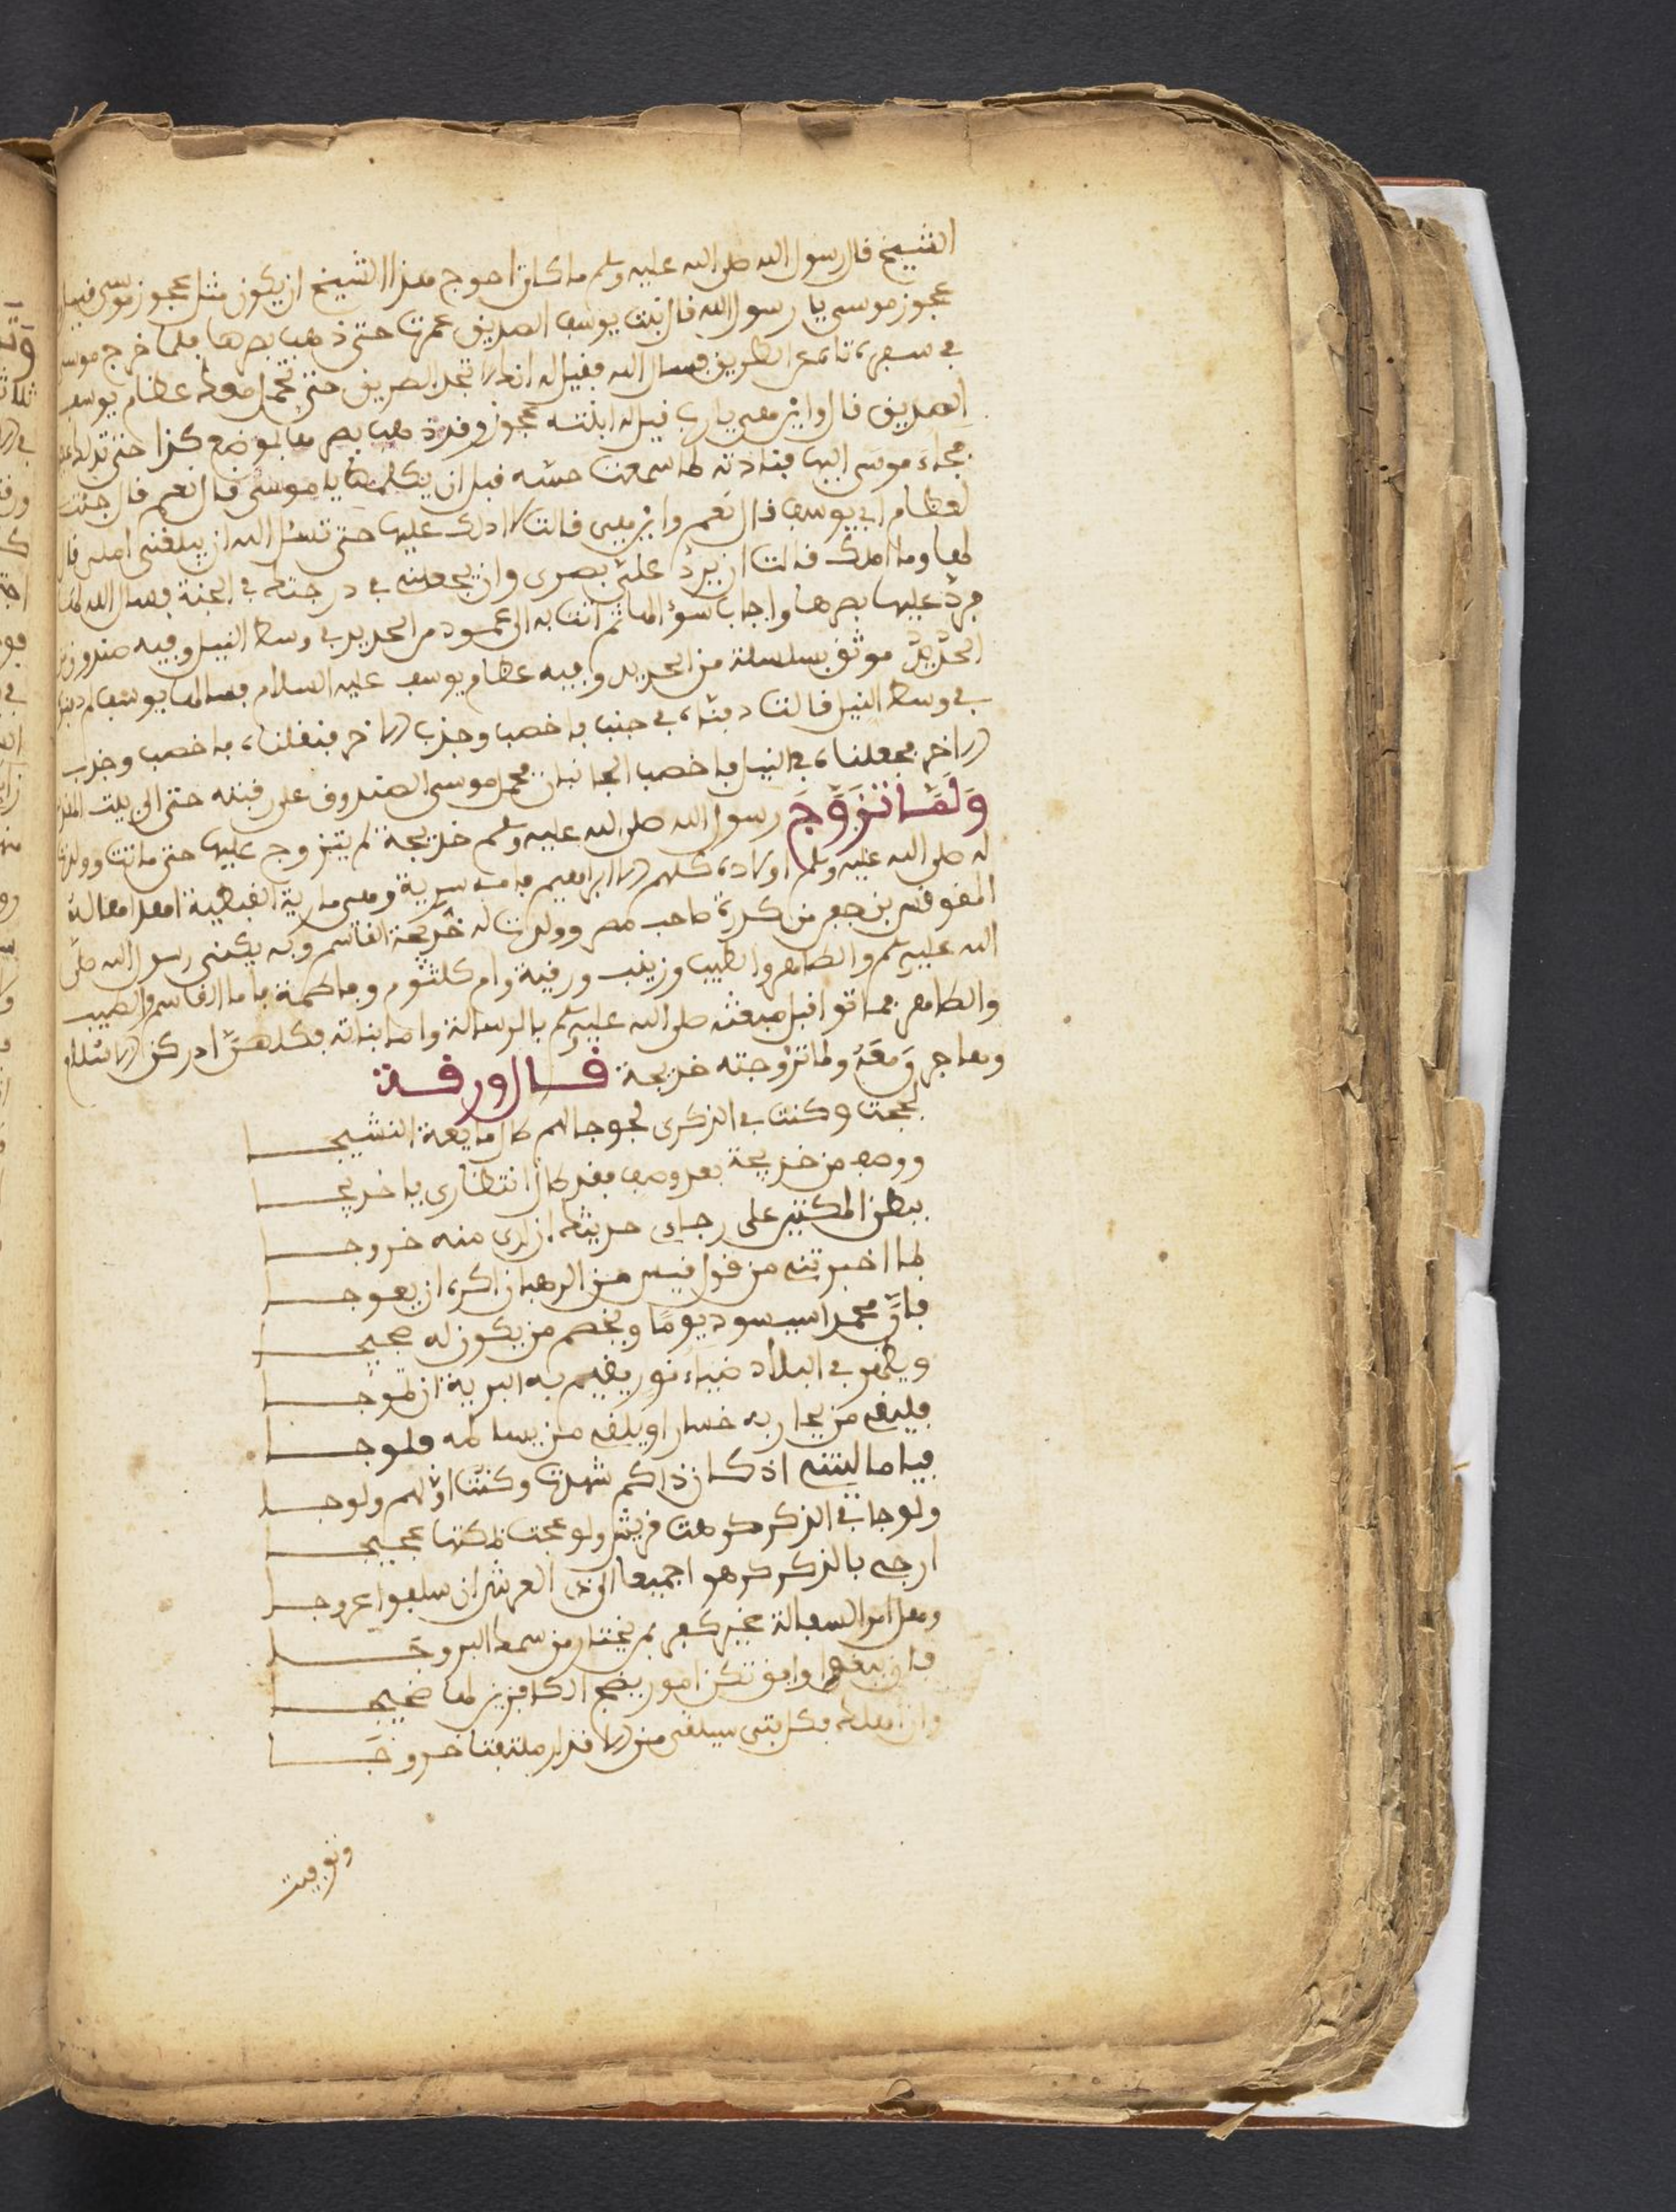 الشيخ قال رسول الله صلى الله عليه وسلم ما كان احوج هذا الشيخ ان يكون مثل عجوز موسى فقيل
عجوز موسى يا رسول الله قال بنت يوسف الصديق عمرت حتى ذهب بصرها فلما خرج موسى
في سفره تاه عن الطريق فسال الله فقيل له انك لا تجد الطريق حتى تحمل معك عظام يوسف
الصديق قال واين هي يا رب قيل له ابنته عجوز وقد ذهب بصرها بموضع كذا حتى تدلك عليه
فجاء موسى اليها فنادته لما سمعت حسه قبل ان يكلمها يا موسى قال نعم قال جئت
لعظام ابي يوسف قال نعم واين هي قالت لا ادلك عليها حتى تسئل الله ان يبلغني املي قال
لها وما املك قالت ان يرد علي بصري وان يجعلني في درجتك في الجنة فسال الله لها
فرد عليها بصرها واجاب سؤالها ثم اتت به الى عمود من الحديد في وسط النيل وفيه صندوق من
الحديد موثق بسلسلة من الحديد وفيه عظام يوسف عليه السلام فسالها يوسف لم دفن
في وسط النيل قالت دفناه في جنب فاخصب وجذب الاخر فنقلناه فاخصب وجذب
الاخر فجعلناه في النيل فاخصب الجانبان فحمل موسى الصندوق على قبته حتى الى بيت المقدس
وَلَمَّا تَزَوَّجَ رسول الله صلى الله عليه وسلم خديجة لم يتزوج عليها حتى ماتت وولدت
له صلى الله عليه وسلم اولاده كلهم الا ابراهيم فمن سرية وهي مارية القبطية اهداها له
المقوقس بن صاحب مصر وولدت له خديجة القاسم وبه يكنى رسول الله صلى
الله عليه وسلم والطاهر والطيب وزينب ورقية وام كلثوم وفاطمة فاما القاسم والطيب
والطاهر فماتوا قبل مبعثه صلى الله عليه وسلم بالرسالة واما بناته فكلهن ادركن الاسلام
وهاجرن مَعَهُ ولما تزوجته خديجة قال ورقة
لججت وكنت في الذكرى لجوجا لهم طال ما يعث النشيجا
ووصف من خديجة بعد وصف فقد طال انتظاري يا خديجا
ببطن المكتين على رجاءي حديثك ان ارى منه خروجا
لما اخبرتني من قول قس من الرهبان اكره ان يعوجا
فان محمدا سيسود يوما ويخصم من يكون له حجيجا
ويظهر في البلاد ضياء نور يقيم به البرية ان تموجا
فيلقى من يحاربه خسارا ويلقى من يسالمه فلوجا
فيا ما ليتني اذ كان ذاكم شهدت وكنت اولهم ولوجا
ولوجا في الذكر كرهت قريش ولو عجت بمكتها عجيجا
ارجى بالذكر كرهوا جميعا الى ذي العرش ان سلفوا عروجا
وهل امر السفالة غير كفر بمن يختار من سمك البروجَا
فان يبقوا وابق تكن امور يضج الكافرين لها ضجيجا
وان اهلك فكل فتى سيلقى من الاقدار متلفة خروجَا
وتوفيت